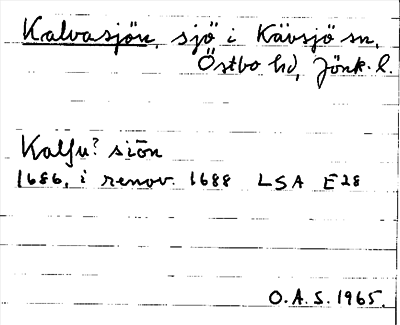 Kalvasjön, sjö i Kävsjö sn,
Östbo hd, Jönk. l.
Kalfu? siön
1686, i renov. 1688 LSA E28
O.A.S. 1965.